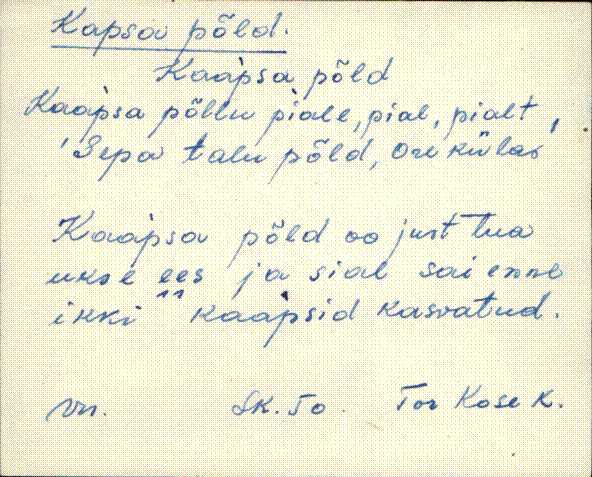 Kapsa põld.
Kaàpsa põld
Kaàpsa põllu piale, pial, pialt,
'Sepa talu põld, Ore külas
Kaàpsa põld oo just tua
ukse ees ja sial sai enne
ikki kaàpsid kasvatud.
Vn. Sk. To. Tor Kose k.